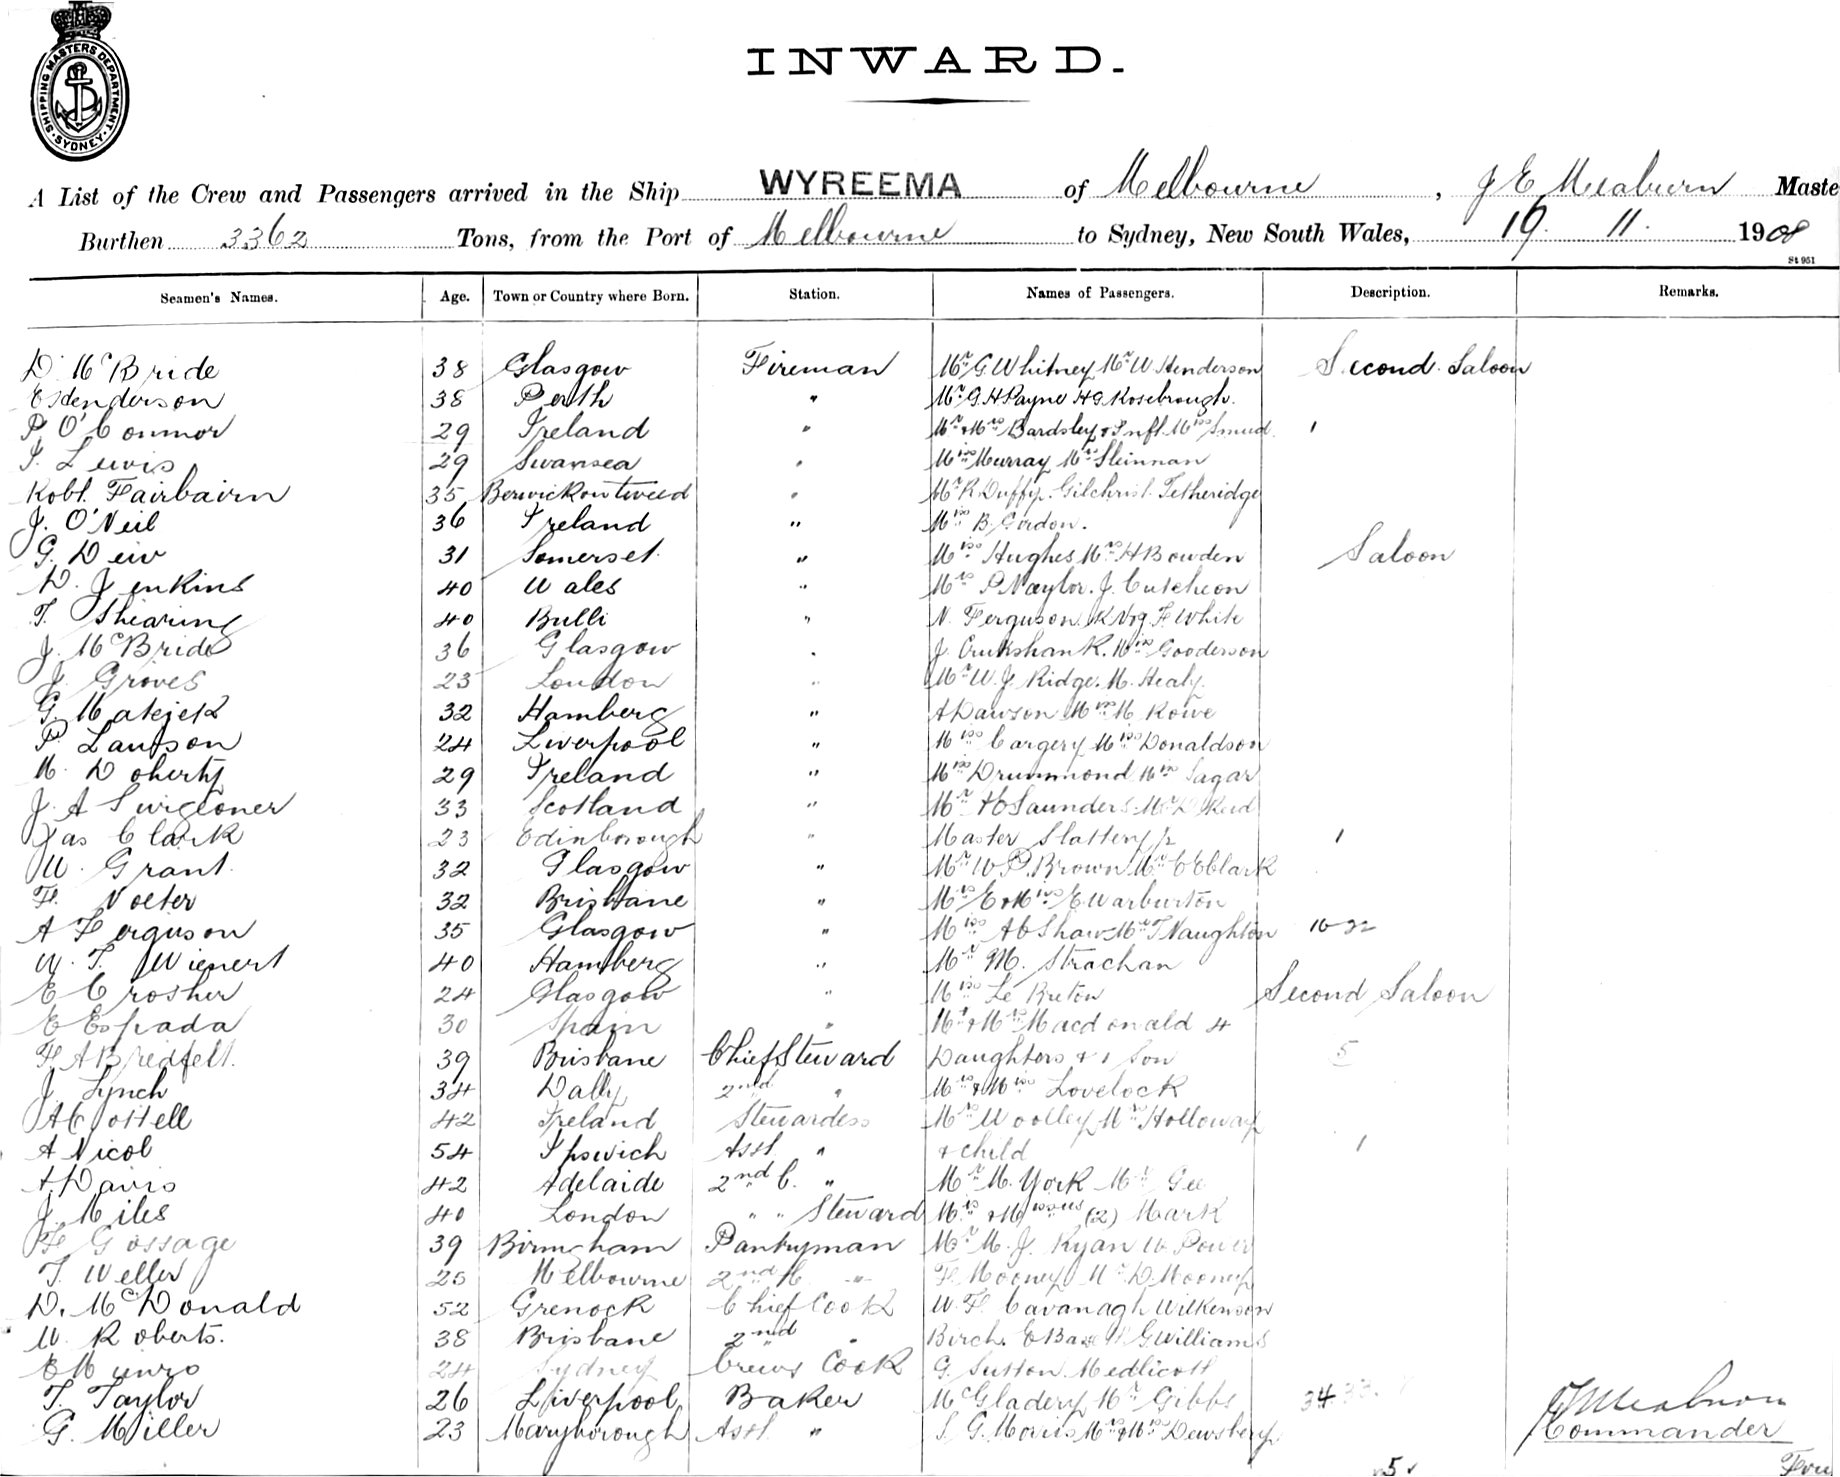 SHIPPING MASTERS DEPARTMENT · SYDNEY ·
INWARD.
A List of the Crew and Passengers arrived in the Ship WYREEMA of Melbourne, J E Meaburn Maste
Burthen 3362 Tons, from the Port of Melbourne to Sydney, New South Wales, 19. 11. 1908
St 951
Seamen's Names. Age. Town or Country where Born. Station. Names of Passengers. Description. Remarks.
D. McBride 38 Glasgow Fireman Mr G Whitney Mr W Henderson Second Saloon
E Henderson 38 Perth " Mr G. H Payne H G Rosebrough.
P. O'Connor 29 Ireland " Mr & Mrs Bardsley & Inft Miss Smud 1
T. Lewis 29 Swansea " Miss Murray Mr Sleinnan
Robt. Fairbairn 35 Berwick on tweed " Mr R Duffy. Gilchrist. Tetheridge
J. O'Neil 36 Ireland " Miss B. Gordon.
G. Dew 31 Somerset " Miss Hughes Mrs H Bowden Saloon
D. Jenkins 40 Wales " Mrs P Naylor. J. Cutcheon
T. Shearing 40 Bulli " N. Ferguson. F White
J. McBride 36 Glasgow " J. Cruikshank. Miss Gooderson
J. Groves 23 London " Mr W. J. Ridge. M. Healy.
G. Matejek 32 Hamberg " A Dawson Miss M Rowe
P. Lawson 24 Liverpool " Miss Cargery Miss Donaldson
M. Doherty 29 Ireland " Miss Drummond Miss Sagar
J. A Surgeoner 33 Scotland " Mr H C Saunders. Mr D Reid
Jas Clark 23 Edinborough " Master Slattery 1
W. Grant 32 Glasgow " Mr W P. Brown Mr C E Clark
F. Volter 32 Brisbane " Mrs E & Miss E Warburton
A Ferguson 35 Glasgow " Miss A C Shaw Mr T Naughton 10-22
W. T. Wienert 40 Hamberg " Mr M. Strachan
E Crosher 24 Glasgow " Miss Le Breton Second Saloon
E Espada 30 Spain " Mr & Mrs Macdonald 4
F. A Bredfelt. 39 Brisbane Chief Steward Daughters & 1 Son 5
J. Lynch 34 Dalby 2nd " Mrs & Miss Lovelock
A Costell 42 Ireland Stewardess Mrs Woolley Mrs Holloway
A Nicol 54 Ipswich Asst. " & child 1
A Davis 42 Adelaide 2nd C. " Mr M. York Mr Gee
J. Miles 40 London " " Steward Mrs & Misses (2) Mark
F Gossage 39 Birmgham Pantryman Mr M. J. Ryan W. Power
T. Weller 25 Melbourne 2nd " F. Mooney Mr D. Mooney
D. McDonald 52 Grenock Chief Cook W. F. Cavanagh Wilkenson
W. Roberts. 38 Brisbane 2nd " Birch. G Williams
E Munro 24 Sydney Crews Cook G. Sutton Medlicott
T. Taylor 26 Liverpool Baker McGladery Mr Gibbs 34
G. Miller 23 Maryborough Asst. " S. G. Morris Mr & Mrs Dewsbery
J E Meaburn
Commander
5